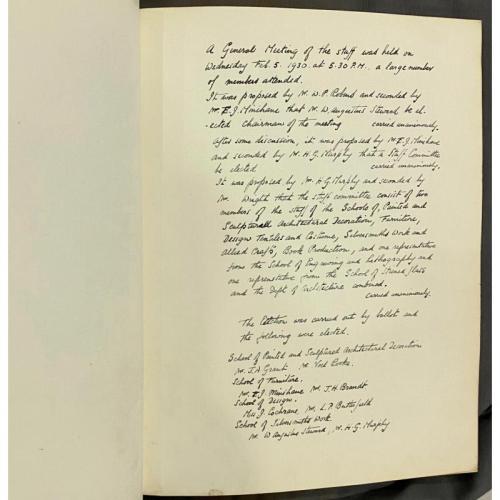 A General Meeting of the staff was held on
Wednesday Feb. 5. 1930 at 5.30 P.M. a large number
of members attended.
It was proposed by Mr. W. P. Robins and seconded by
Mr. E. J. Minshane that Mr. W. Augustus Steward be el-
-ected Chairman of the meeting carried unanimously.
After some discussion, it was proposed by Mr E. J. Minshane
and seconded by Mr. H. G. Murphy that a Staff Committee
be elected carried unanimously.
It was proposed by Mr. H. G. Murphy and seconded by
Mr. Wright that the staff committee consist of two
members of the staff of the Schools of Painted and
Sculptured Architectural Decoration, Furniture,
Design Textiles and Costume, Silversmiths Work and
Allied Crafts, Book Production, and one representative
from the School of Engraving and Lithography and
one representative from the School of Stained glass
and the Dept of architecture combined.
carried unanimously.
The Election was carried out by ballot and
the following were elected.
School of Painted and Sculptured Architectural Decoration
Mr. J. A. Grant Mr. Cooke.
School of Furniture.
Mr. E. J. Minshane Mr. J. H. Brandt
School of Design.
Miss J. Cochrane, Mr. L. P. Butterfield
School of Silversmiths Work
Mr. W Augustus Steward, Mr. H. G. Murphy